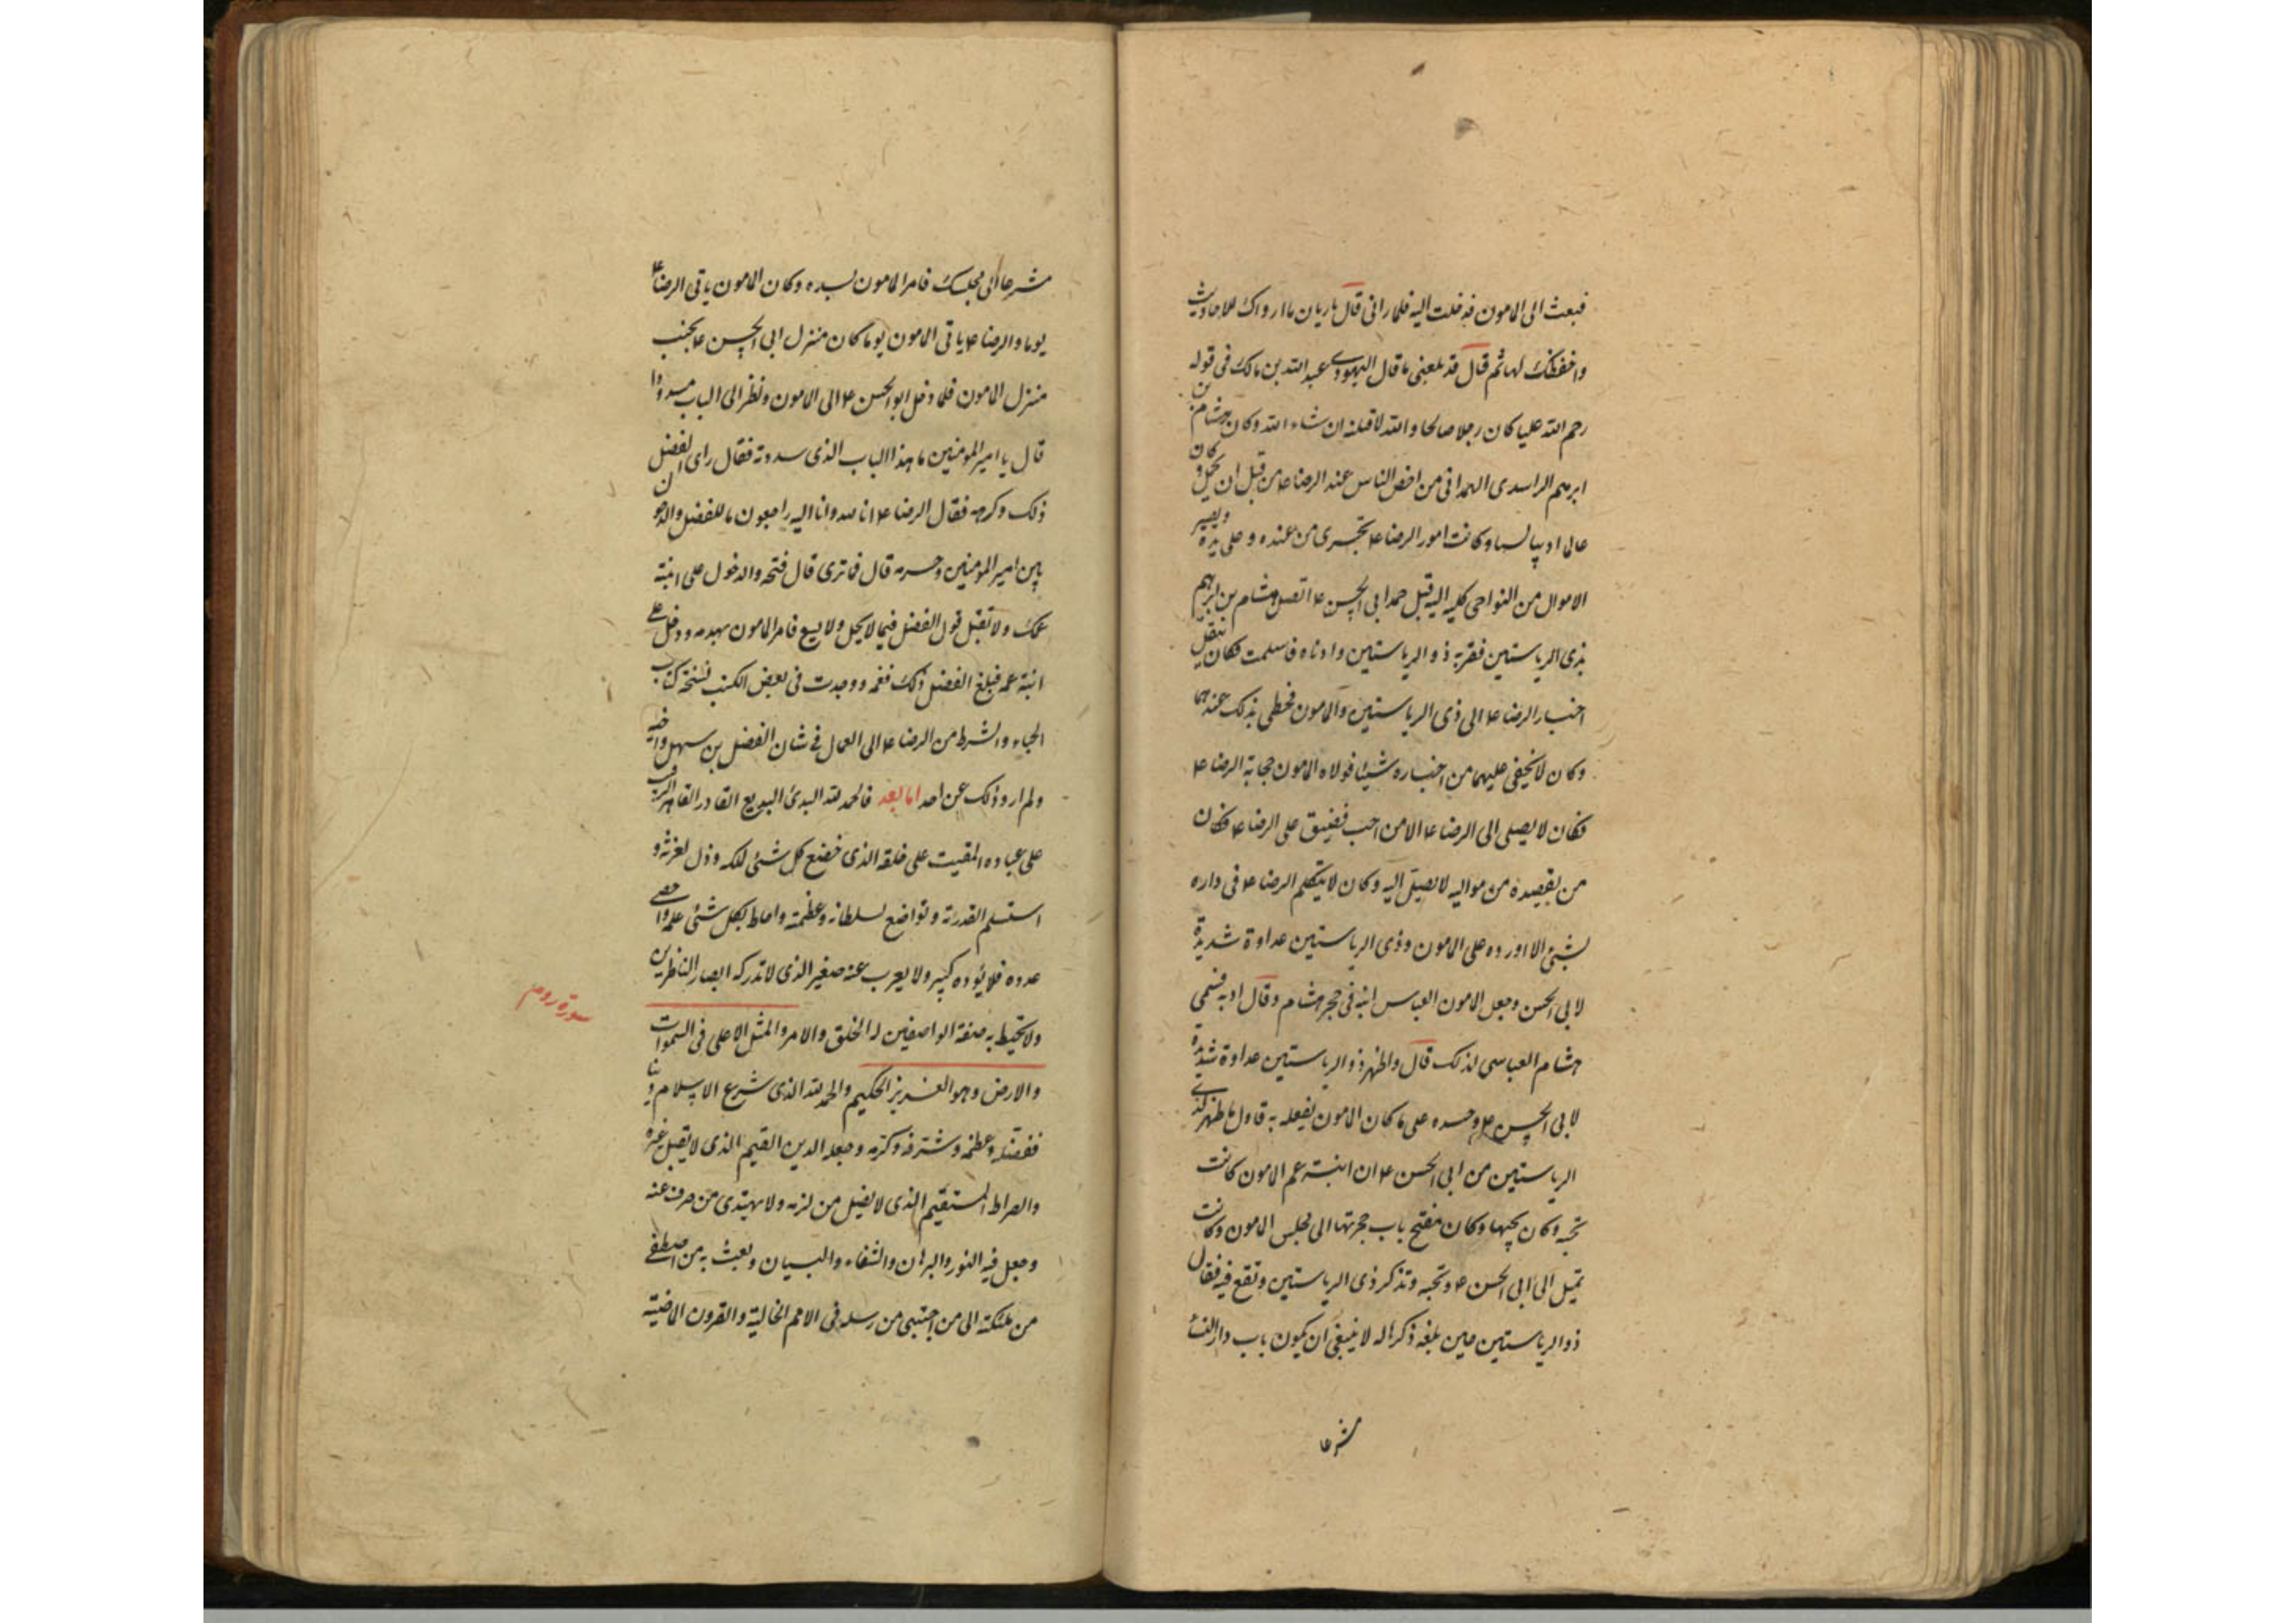 فبعث الی المامون فدخلت الیه فلما رانی قال یا ریان ما ارواک للاحادیث
واحفظک لها ثم قال قد بلغنی ما قال الیهودی عبد الله بن مالک فی قوله
رحم الله علیا کان رجلا صالحا والله لاقتلنه ان شاء الله وکان هشام بن
ابرهیم الراشدی الهمدانی من اخص الناس عند الرضا ع من قبل ان یحمل وکان
عالما ادیبا لسبا وکانت امور الرضا ع تجری من عنده وعلی یده ویصیر
الاموال من النواحی کلها الیه قبل حمل ابی الحسن ع اتصل هشام بن ابرهیم
بذی الریاستین فقربه ذو الریاستین وادناه فکان ینقل
اخبار الرضا ع الی ذی الریاستین والمامون فحظی بذلک عندهما
وکان لا یخفی علیهما من اخباره شیئا فولاه المامون حجابة الرضا ع
فکان لا یصل الی الرضا ع الا من احب فضیق علی الرضا ع فکان
من یقصده من موالیه لا یصل الیه وکان لا یتکلم الرضا ع فی داره
بشیء الا اورده علی المامون وذی الریاستین عداوة شدیدة
لابی الحسن وجعل المامون العباس ابنه فی حجر هشام وقال ادبه فسمی
هشام العباسی لذلک قال واظهر ذو الریاستین عداوة شدیدة
لابی الحسن ع وحسده علی ما کان المامون یفعله به فاول ما ظهر لذی
الریاستین من ابی الحسن ع ان ابنة عم المامون کانت
تحبه وکان یحبها وکان مفتح باب حجرتها الی مجلس المامون وکانت
تمیل الی ابی الحسن ع وتحبه وتذکر ذی الریاستین وتقع فیه فقال
ذو الریاستین حین بلغه ذکرها له لا ینبغی ان یکون باب دار النساء
مشرعا
مشرعا الی مجلسک فامر المامون بسده وکان المامون یاتی الرضا ع
یوما والرضا ع یاتی المامون یوما کان منزل ابی الحسن ع بجنب
منزل المامون فلما دخل ابو الحسن ع الی المامون ونظر الی الباب مسدودا
قال یا امیر المومنین ما هذا الباب الذی سددته فقال رای الفضل
ذلک وکرهه فقال الرضا ع انا لله وانا الیه راجعون ما للفضل والدخول
بین امیر المومنین وحرمه قال فما تری قال فتحه والدخول علی ابنة
عمک ولا تقبل قول الفضل فیما لا یحل ولا یسع فامر المامون بهدمه ودخل علی
ابنة عمه فبلغ الفضل ذلک فغمه ووجدت فی بعض الکتب نسخة کتاب
الحباء والشرط من الرضا ع الی العمال فی شان الفضل بن سهل واخیه
ولم ارو ذلک عن احد اما بعد فالحمد لله البدئ البدیع القادر القاهر الرقیب
علی عباده المقیت علی خلقه الذی خضع کل شئ لملکه وذل لعزته و
استسلم لقدرته وتواضع لسلطانه وعظمته واحاط بکل شئ علمه واحصی
عدده فلا یؤده کبیر ولا یعزب عنه صغیر الذی لا تدرکه ابصار الناظرین
سورة روم
ولا تحیط به صفة الواصفین له الخلق والامر والمثل الاعلی فی السموات
والارض وهو العزیز الحکیم والحمد لله الذی شرع الاسلام دینا
ففضله وعظمه وشرفه وکرمه وجعله الدین القیم الذی لا یقبل غیره
والصراط المستقیم الذی لا یضل من لزمه ولا یهتدی من صرف عنه
وجعل فیه النور والبرهان والشفاء والبیان وبعث به من اصطفی
من ملئکته الی من اجتبی من رسله فی الامم الخالیة والقرون الماضیة